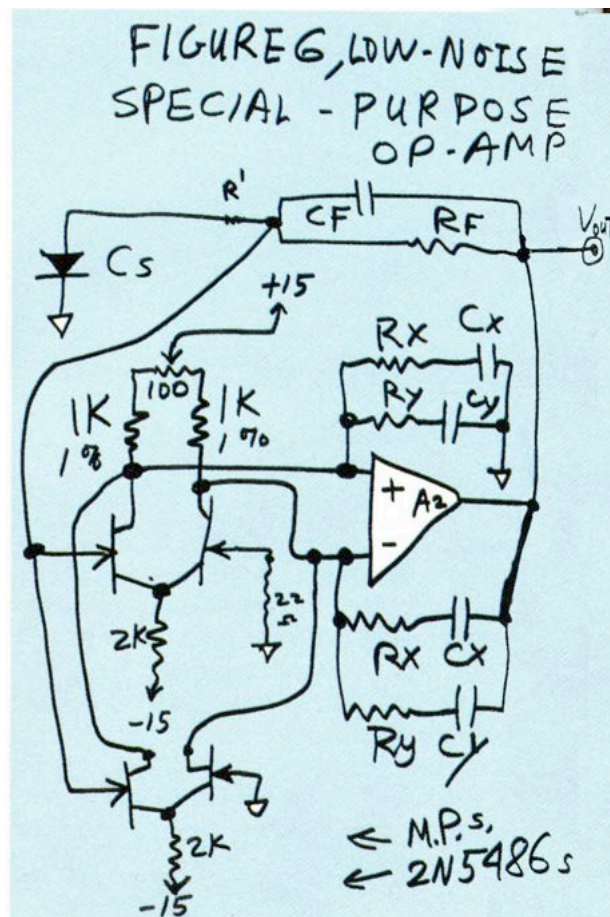 FIGURE 6, LOW-NOISE
SPECIAL - PURPOSE
OP-AMP
R'
CF
RF
VOUT
Cs
+15
100
1K
1%
1K
1%
Rx
Cx
Ry
Cy
+
A2
-
22
Ω
2K
-15
Rx
Cx
Ry
Cy
2K
-15
← M.P.s,
← 2N5486s